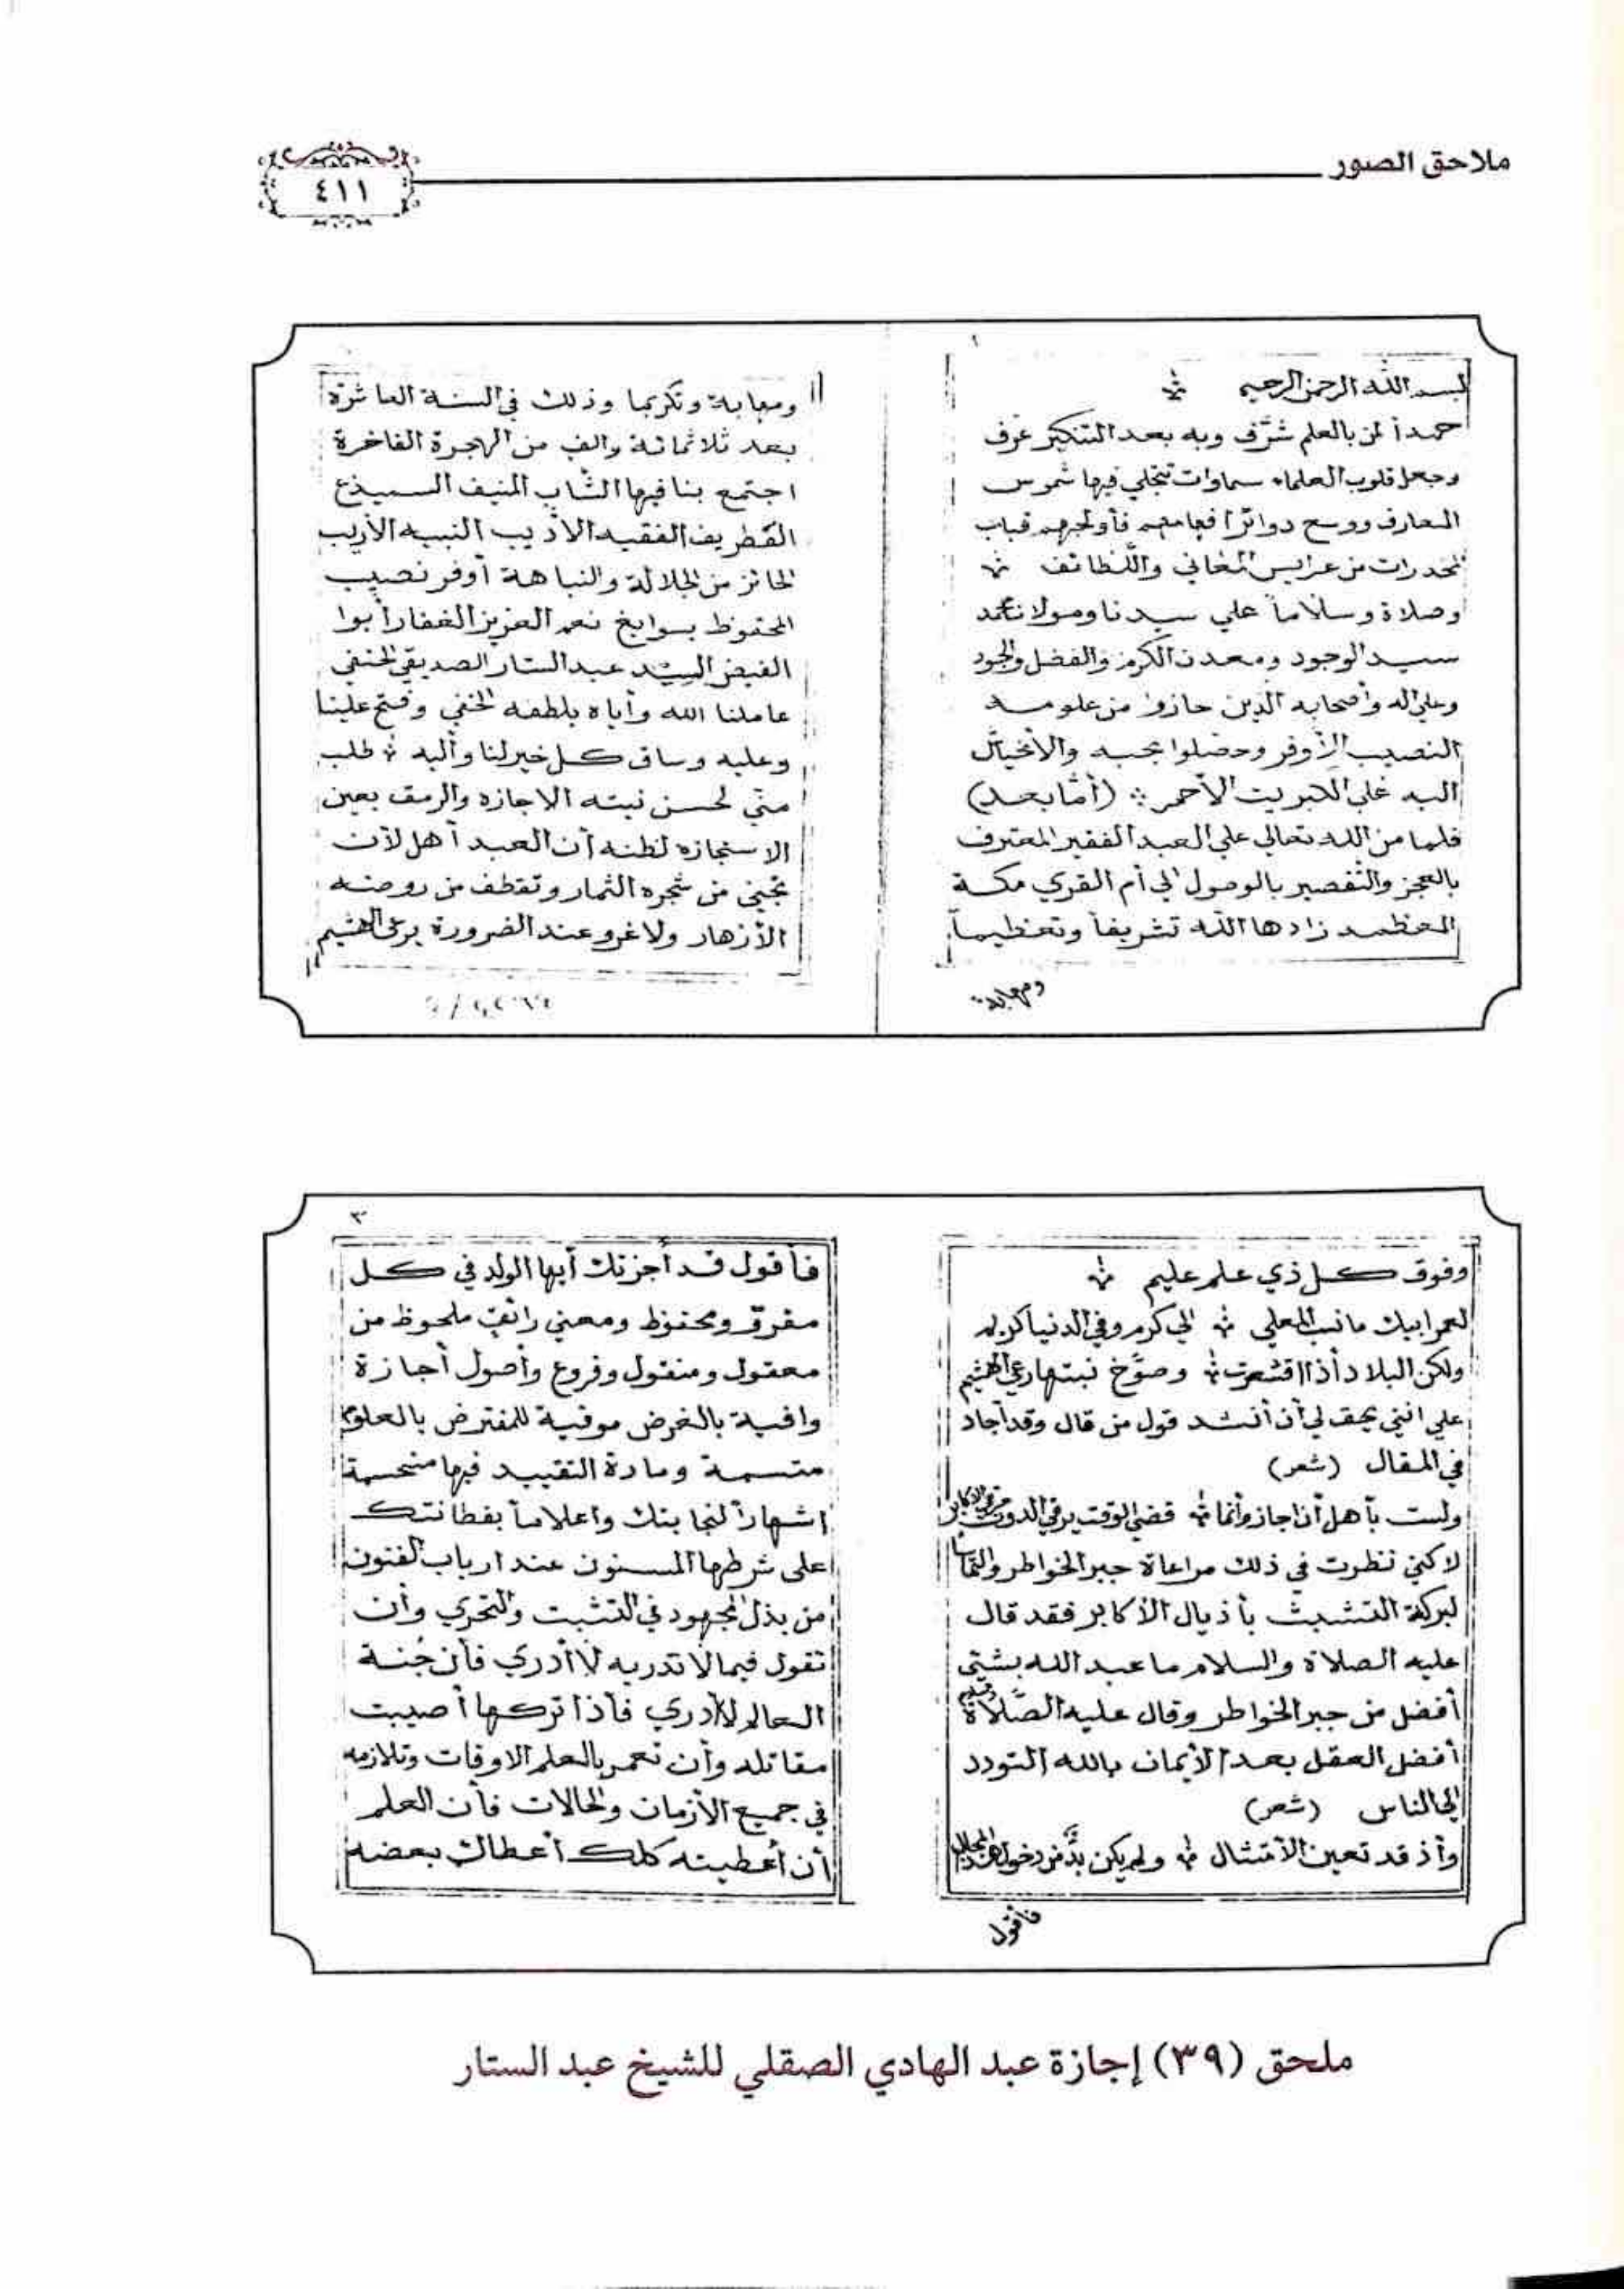 ملاحق الصور
٤١١
بسم الله الرحمن الرحيم
حمداً لمن بالعلم شرّف وبه بعد التنكير عرف
وجعل قلوب العلماء سماوات تتجلي فيها شموس
المعارف ووسع دوائرا فهامهم فأولجهم قباب
المخدرات من عرايس المعاني واللطائف
وصلاة وسلاماً علي سيدنا ومولانا محمد
سيد الوجود ومعدن الكرم والفضل والجود
وعلي اله وأصحابه الذين حازوا من علومه
النصيب الأوفر وحصلوا بحبه والأنحياش
اليه علي الكبريت الأحمر (أما بعد)
فلما من الله تعالي علي العبد الفقير المعترف
بالعجز والتقصير بالوصول الي أم القري مكة
المعظمه زادها الله تشريفاً وتعظيماً
ومهابة
ومهابة وتكريما وذلك في السنة العاشرة
بعد ثلاثمائة والف من الهجرة الفاخرة
اجتمع بنا فيها الشاب المنيف السميذع
الغطريف الفقيه الأديب النبيه الأريب
الحائز من الجلالة والنباهة أوفر نصيب
المحفوظ بسوابغ نعم العزيز الغفار أبوا
الفيض السيّد عبد الستار الصديقي الحنفي
عاملنا الله وأياه بلطفه الخفي وفتح علينا
وعليه وساق كل خير لنا وأليه طلب
مني لحسن نيته الاجازه والرمق بعين
الاستجازه لظنه أن العبد أهل لأن
تجتني من شجره الثمار وتقطف من روضه
الأزهار ولا غرو عند الضرورة يرعى الهشيم
وفوق كل ذي علم عليم
لعمر ابيك ما نسب المعلي الي كرم وفي الدنيا كريم
ولكن البلاد أذا اقشعرت وصوّح نبتها رعي الهشيم
علي انني يحق لي أن أنشد قول من قال وقد أجاد
في المقال (شعر)
ولست بأهل أن اجاز وأنما قضي الوقت يرقي الدون مرقي الأكابر
لاكني نظرت في ذلك مراعاة جبر الخواطر والتماسا
لبركة التشبث بأذيال الأكابر فقد قال
عليه الصلاة والسلام ما عبد الله بشئ
أفضل من جبر الخواطر وقال عليه الصّلاة
أفضل العقل بعد الأيمان بالله التودد
الي الناس (شعر)
وأذ قد تعين الأمتثال ولم يكن بدٌّ من دخول
فأقول
٣
فأقول قد أجزتك أيها الولد في كل
مقروّ ومحفوظ ومعني رائق ملحوظ من
معقول ومنقول وفروع وأصول أجازة
وافية بالغرض موفية للمفترض بالعلوم
متسمة ومادة التقييد فيها منحسمة
اشهاراً لنجابتك واعلاماً بفطانتك
على شرطها المسنون عند ارباب الفنون
من بذل المجهود في التثبت والتحري وأن
تقول فيما لا تدريه لا أدري فأن جُنة
العالم لا أدري فأذا تركها أصيبت
مقاتله وأن تعمر بالعلم الاوقات وتلازمه
في جميع الأزمان والحالات فأن العلم
أن أعطيته كلك أعطاك بعضه
ملحق (٣٩) إجازة عبد الهادي الصقلي للشيخ عبد الستار